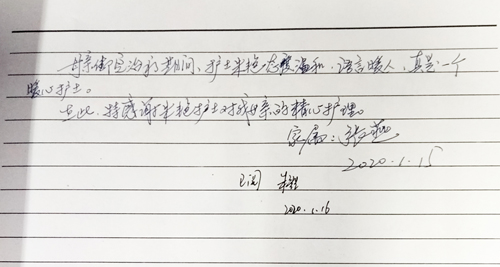 母亲住院治疗期间，护士朱艳态度温和，语言暖人，真是一个
暖心护士。
在此，特感谢朱艳护士对我母亲的精心护理。
家属：张
2020.1.15
已阅
2020.1.16